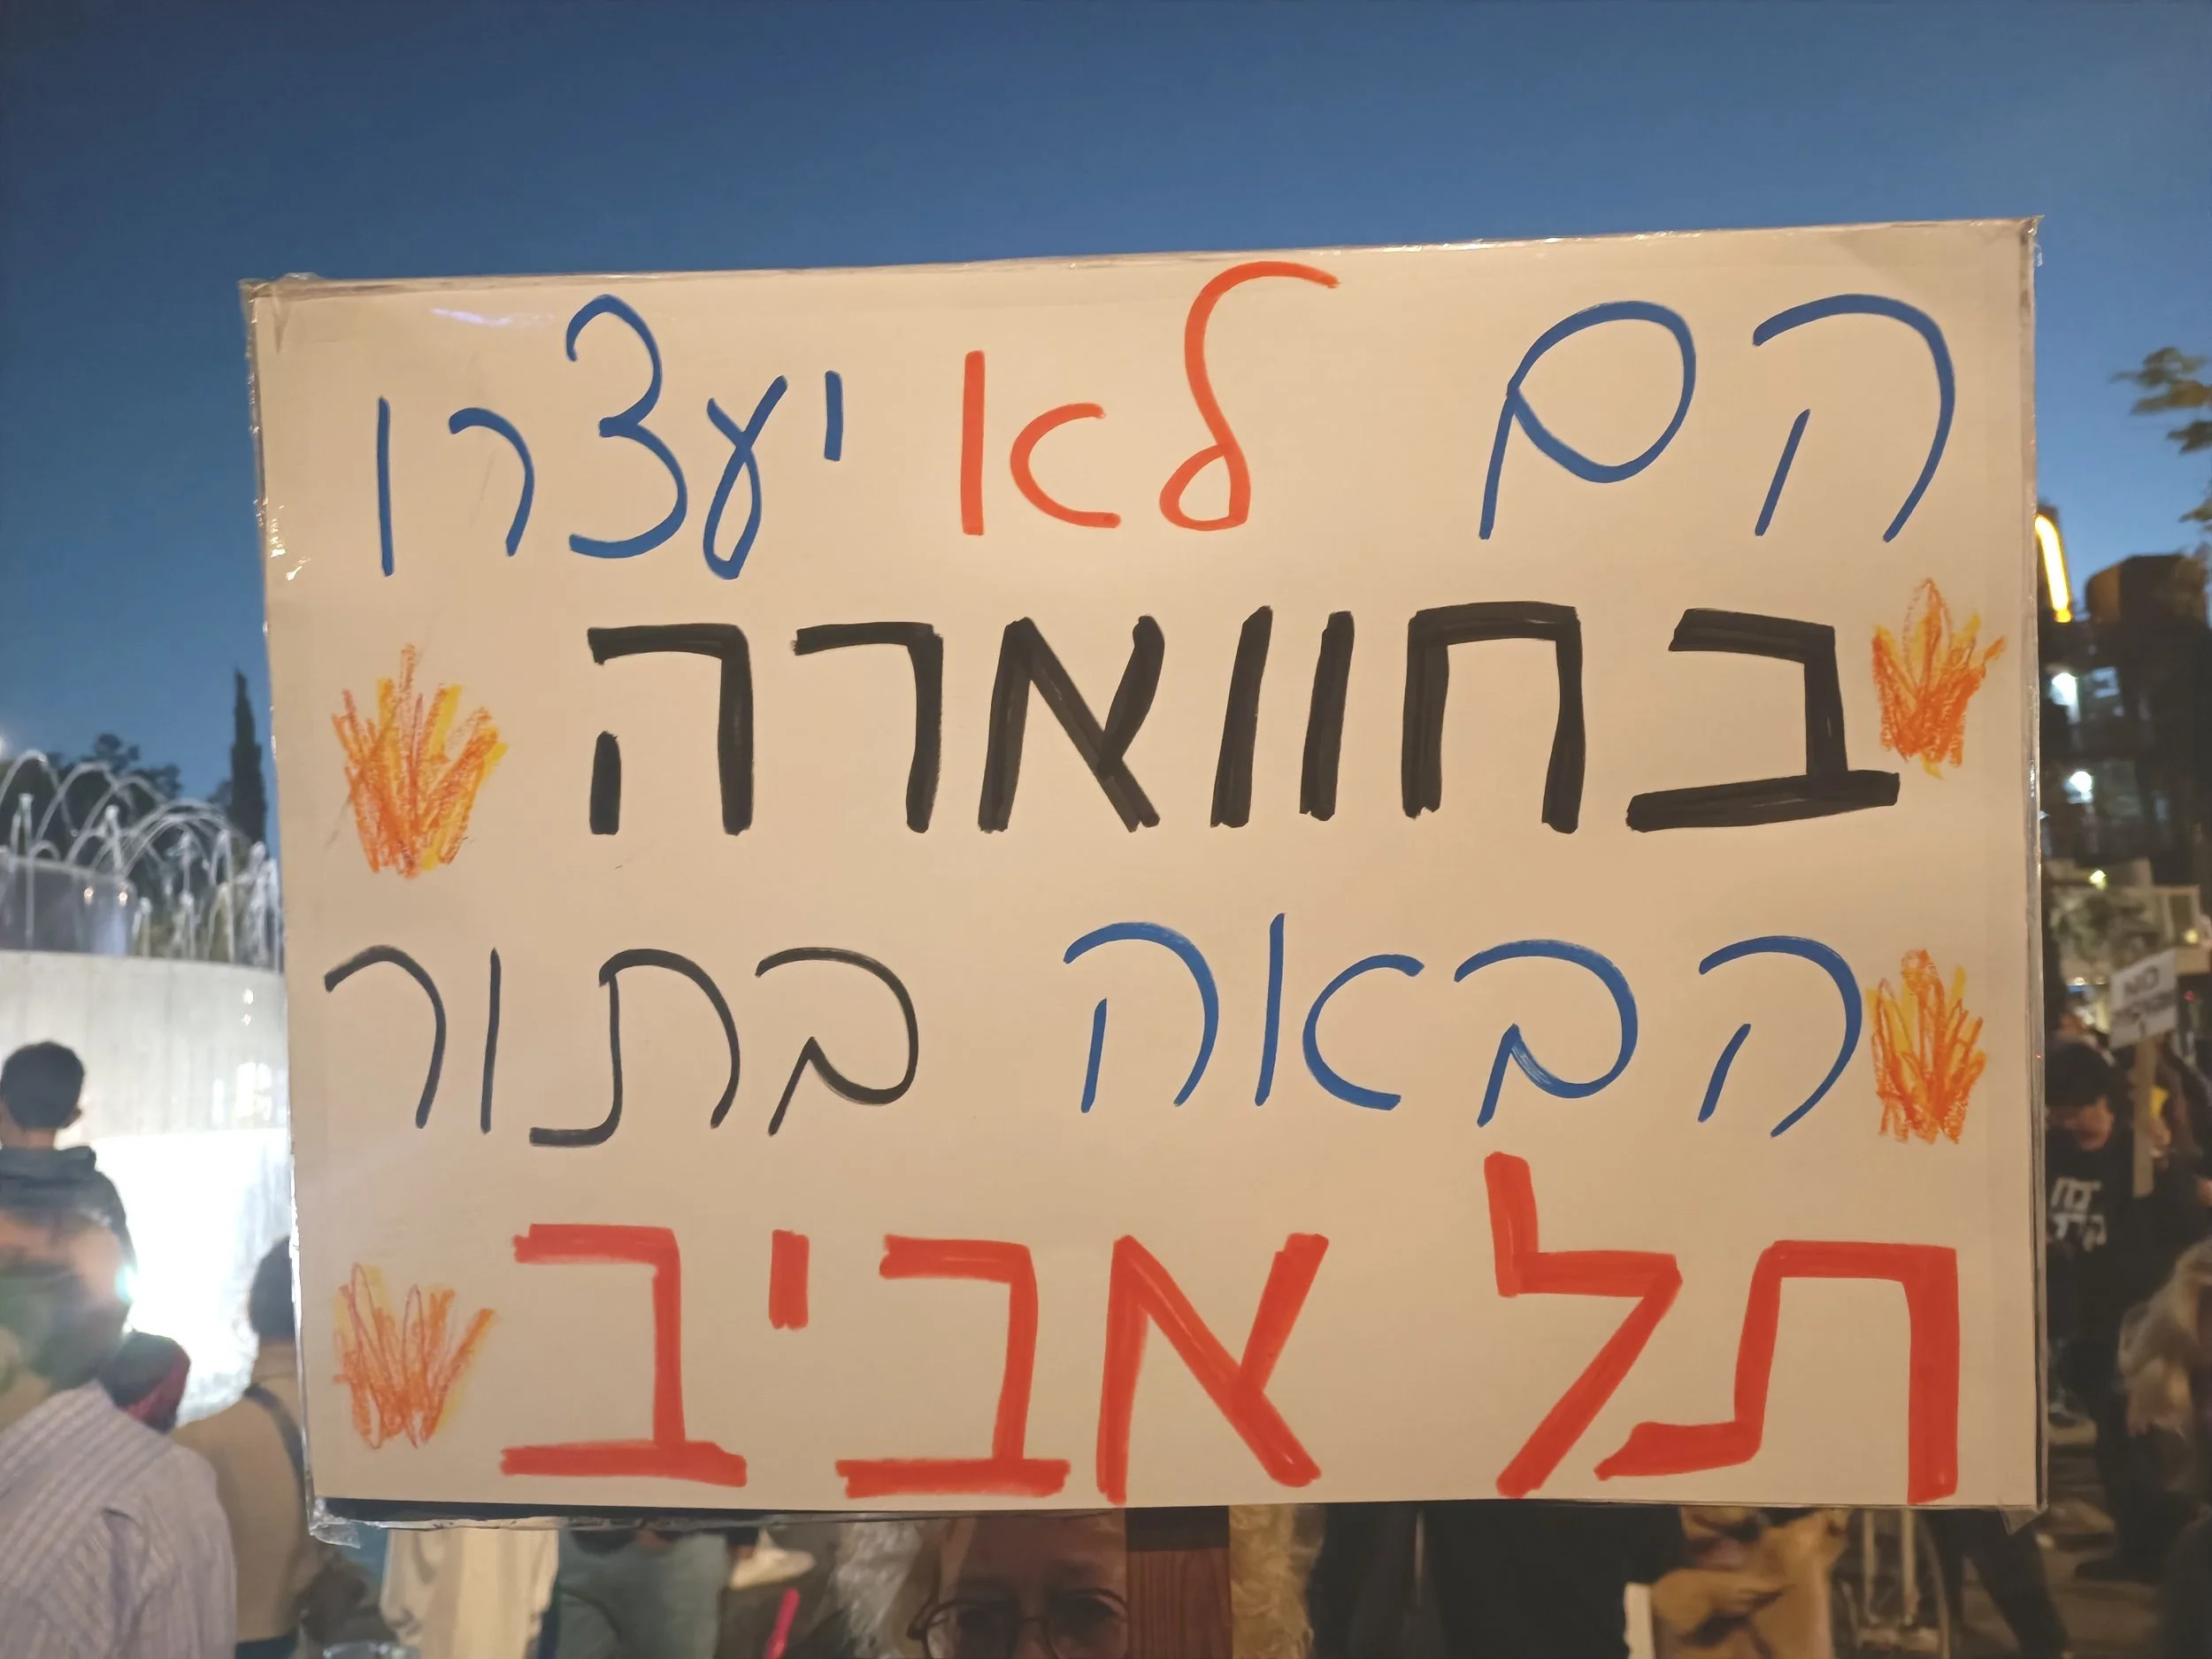 הם לא יעצרו
בחווארה
הבאה בתור
תל אביב
NO